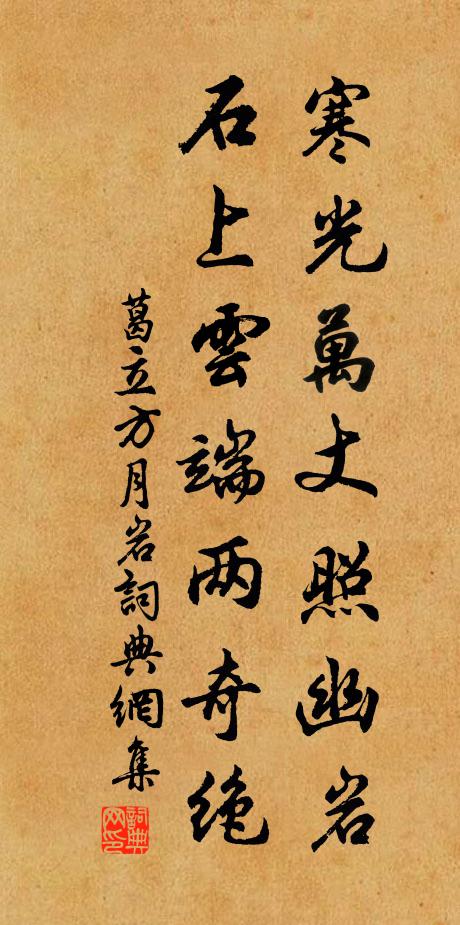 寒光萬丈照幽岩
石上雲端两奇绝
葛立方月岩詞典網集
詞典网印